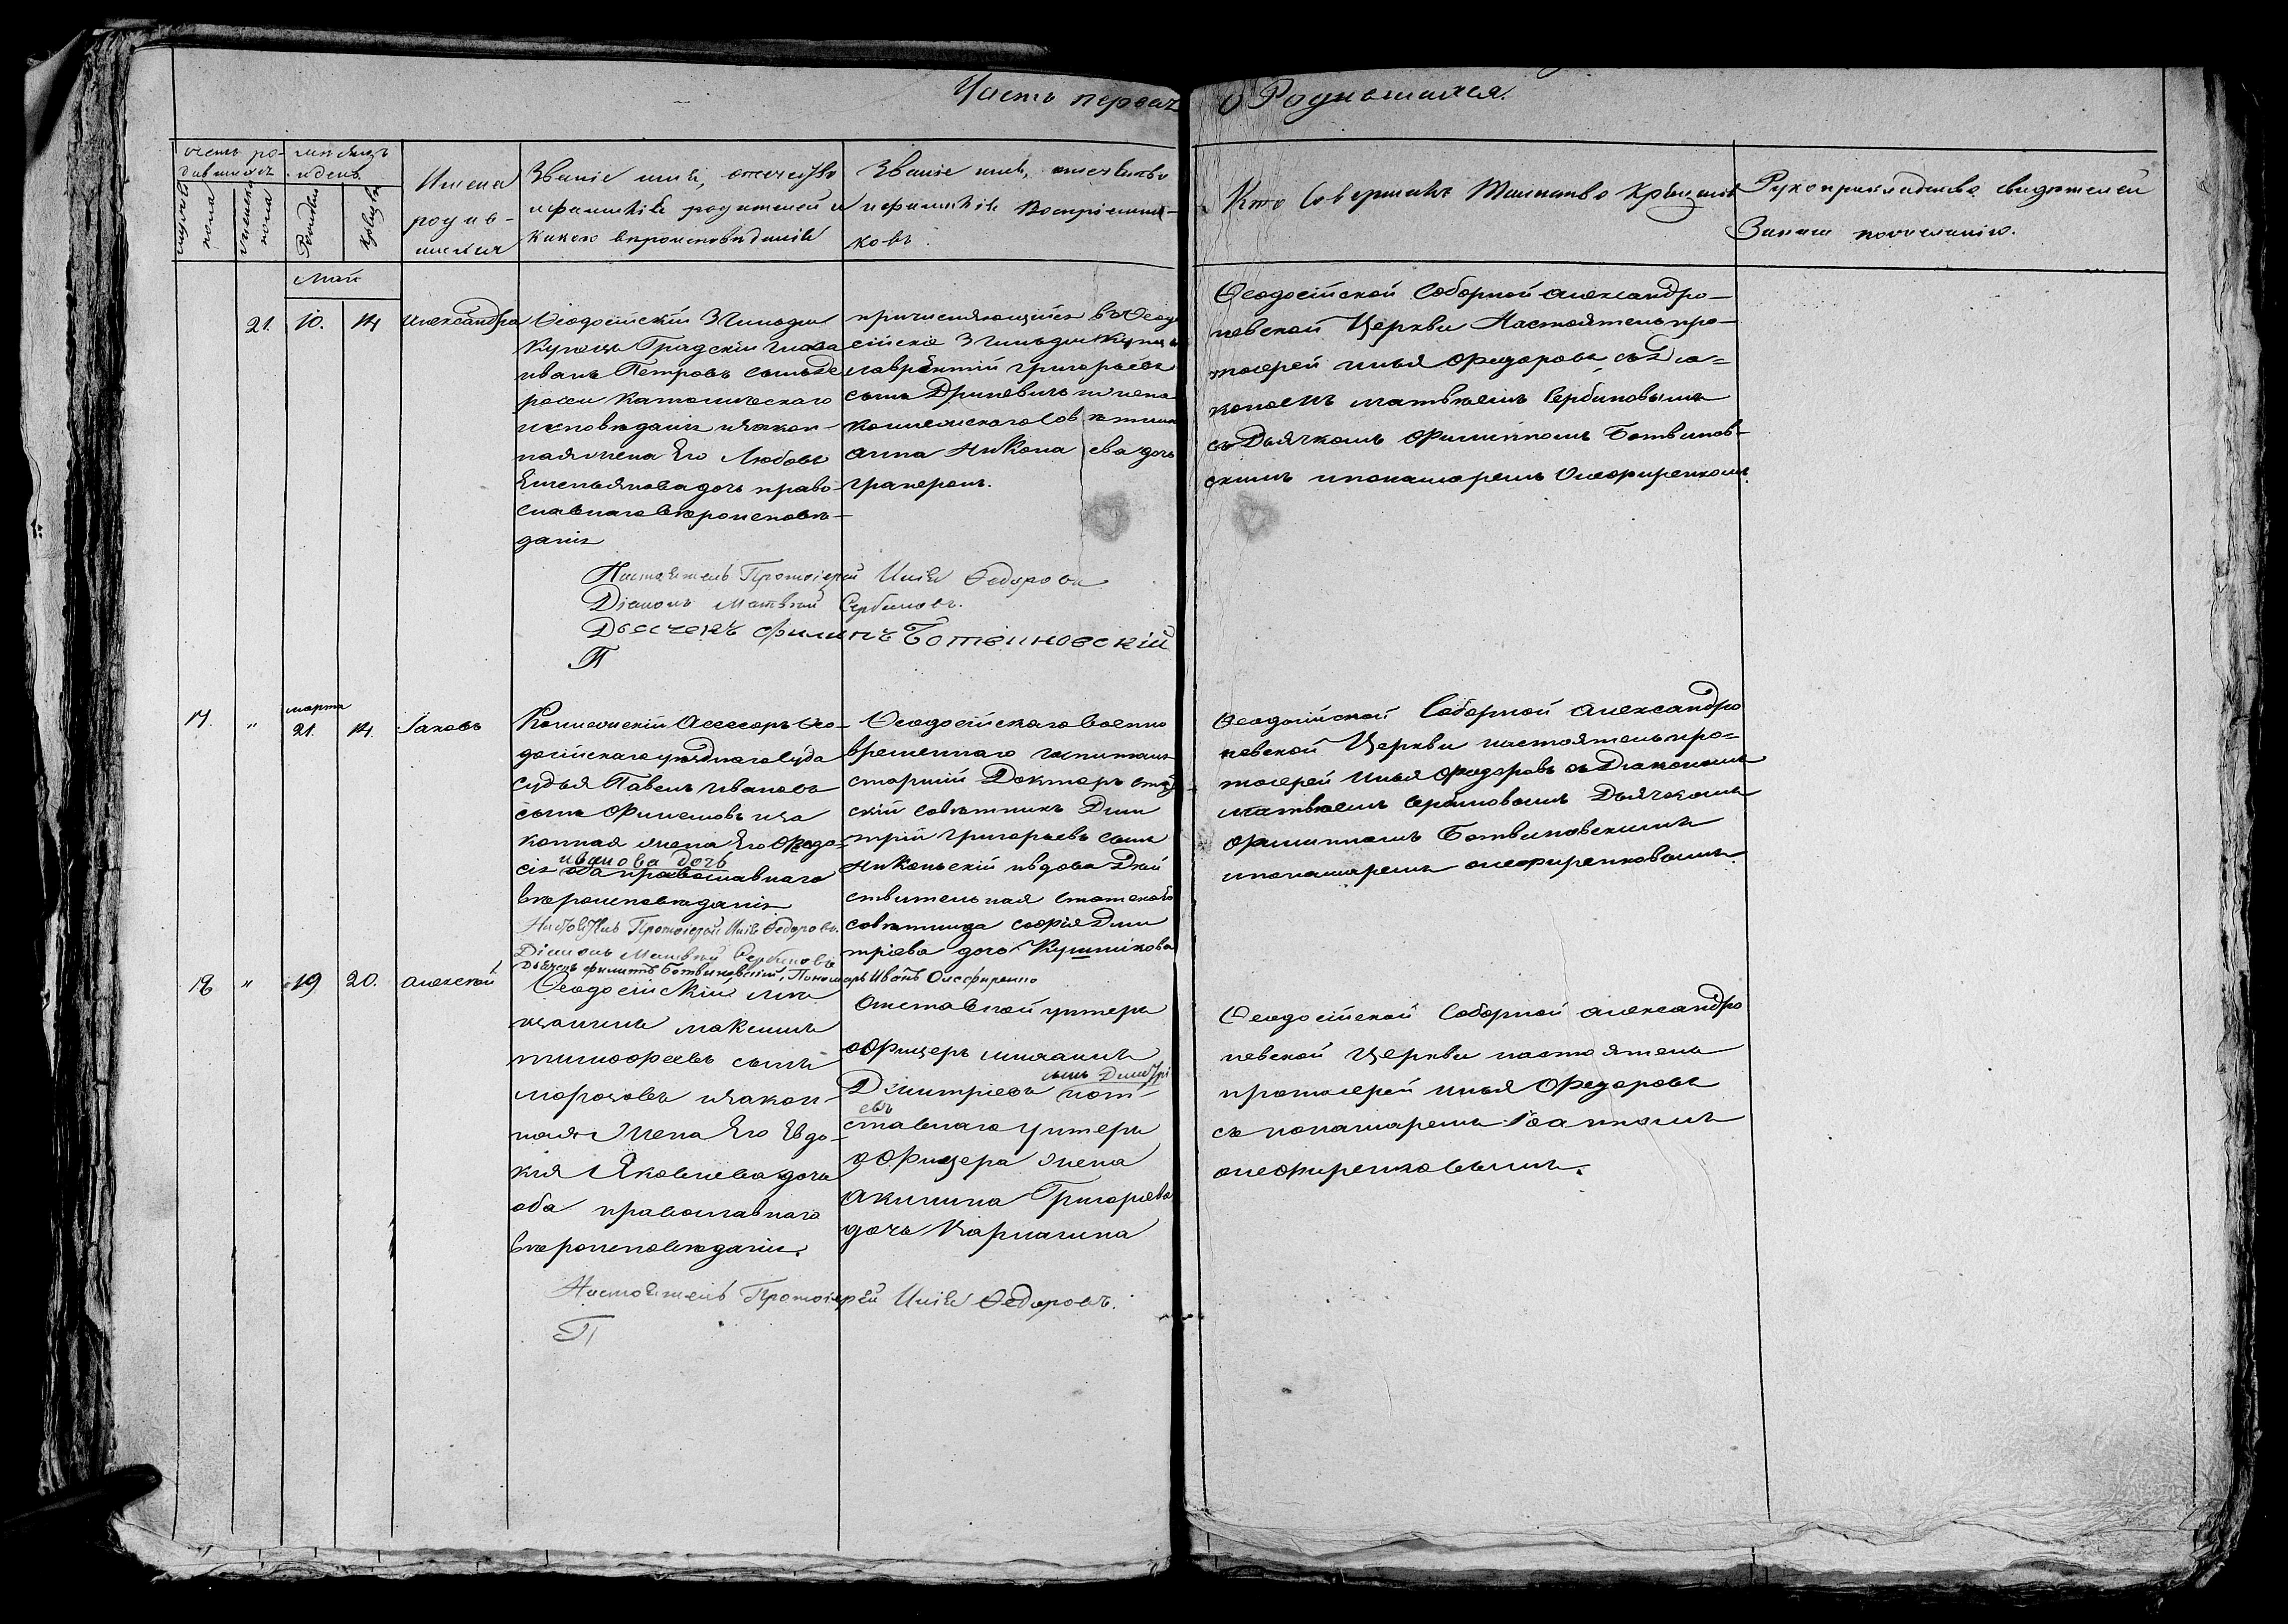 Часть первая о Родившихся.
счетъ ро-
дившихся
мѣсяцъ
и день
мужеска
пола
женска
пола
Рожден
Крещен
Имена
родив-
шихся
Званіе имя, отечество
и фамилія родителей и
какого вѣроисповѣданія
Званіе имя, отечество
и фамилія Воспріемни-
ковъ.
Кто совершалъ Таинство крещенія
Рукоприкладство свидѣтелей
Записи по желанію.
Май
21. 10. 14 Александра
Ѳеодосійскій 3 Гильдіи
Купецъ Градскій Глава
иванъ Петровъ сынъ Де
росси Католическаго
исповѣданія и закон-
ная жена Его Любовь
Емельянова дочь право-
славнаго вѣроисповѣ-
данія
причисляющійся въ Ѳеодо
сійскіе 3 гильдіи Купцы
лаврентій григорьевъ
сынъ и жена
Анна Никола ева дочь
граперонъ.
Ѳеодосійской Соборной Александро-
невской Церкви Настоятель про-
тоіерей илья Федоровъ съ Діа-
кономъ матвѣемъ Сербиновымъ
съ Дьячкомъ Филиппомъ Ботвинов-
скимъ и пономаремъ Олефиренкомъ.
Настоятель Протоіерей Илія Ѳедоровъ
Діаконъ Матвѣй Сербиновъ.
Дьячекъ Филипъ Ботвиновскій
П
17. " марта
21. 14. Іаковъ
Колежскій Асессоръ Ѳео-
досійскаго уѣзднаго Суда
судья Павелъ ивановъ
сынъ и за
конная жена Его Федо-
сія иванова дочь
оба православнаго
вѣроисповѣданія
Ѳеодосійскаго военно
временнаго гошпиталя
старшій Докторъ стат
скій совѣтникъ Дми
трій григорьевъ сынъ
Никольскій и вдова Дѣй
ствительная статская
совѣтница софія Дми
тріева дочь Кушникова
Ѳеодосійской Соборной Александро
невской Церкви настоятель про-
тоіерей илья Фидоровъ съ Діакономъ
матвѣемъ Сербиновымъ Дьячкомъ
Филиппомъ Ботвиновскимъ
и пономаремъ олефиренковымъ
Настоятель Протоіерей Илія Ѳедоровъ.
Діаконъ Матвѣй Сербиновъ
Дьячекъ филиппъ Ботвиновскій, Пономарь Иванъ Олефиренко
18 " 19 20. Алексей
Ѳеодосійскій мѣ
щанинъ максимъ
тимофеевъ сынъ
морозовъ и закон-
ная Жена Его Евдо-
кия Яковлева дочь
оба православнаго
вѣроисповѣданія.
Отставной унтеръ
офицеръ
Дмитріевъ сынъ Димитрі
евъ и от-
ставнаго унтеръ
офицера жена
Акилина Григорьева
дочь Карпагина
Ѳеодосійской Соборной Александро
невской Церкви настоятель
протоіерей илья Фидоровъ
съ пономаремъ Іоанномъ
олефиренковымъ.
Настоятель Протоіерей Илія Ѳедоровъ.
П